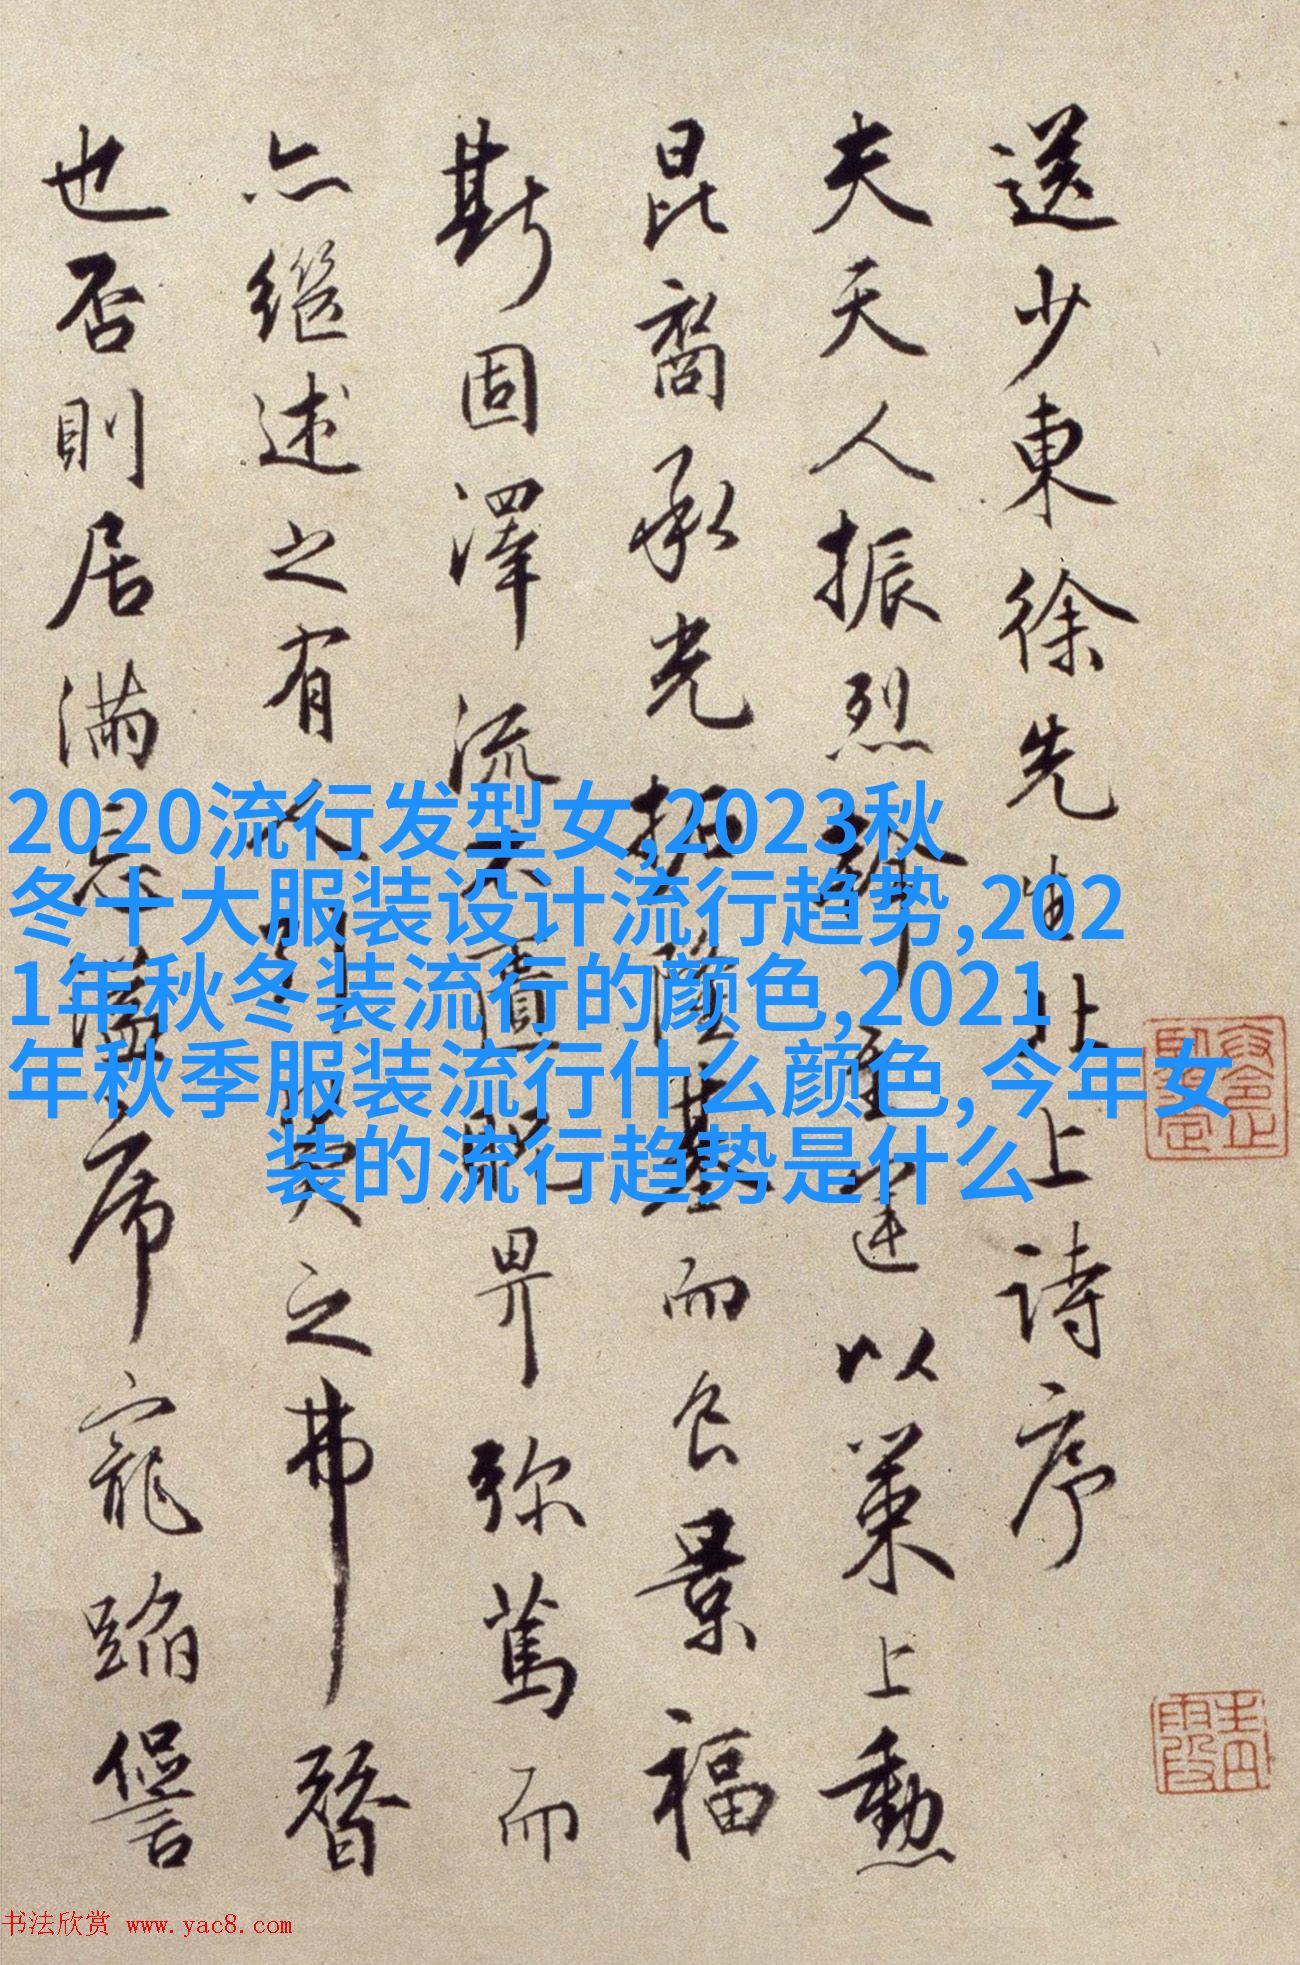 送少東徐先生北上詩序
夫天人振烈以策上勳
昆裔承光拓隆基而召景福
斯固澤流畀弥篤而
亦继述之有之弗替
也否則居滿忘席寵蹈
2020流行发型女,2023秋
冬十大服装设计流行趋势,202
1年秋冬装流行的颜色,2021
年秋季服装流行什么颜色,今年女
装的流行趋势是什么
书法欣赏 www.yac8.com